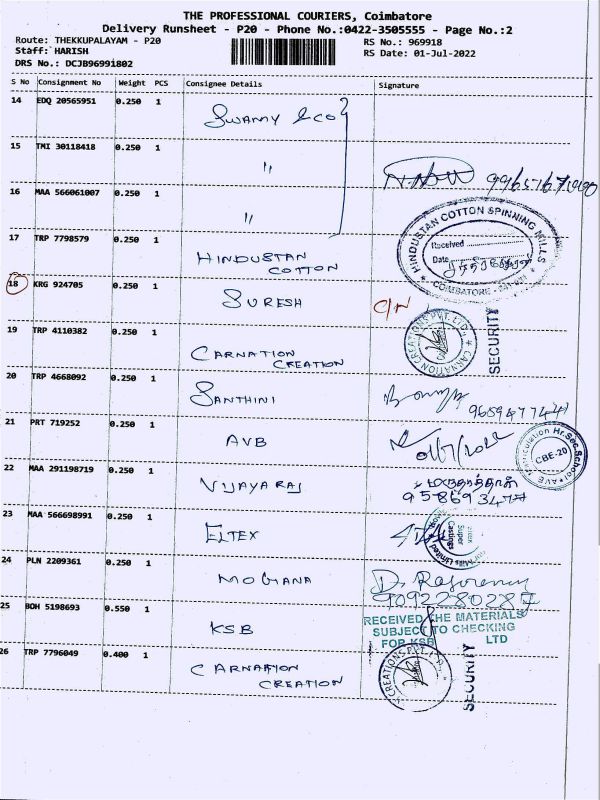 THE PROFESSIONAL COURIERS, Coimbatore
Delivery Runsheet - P20 - Phone No.:0422-3505555 - Page No.:2
Route: THEKKUPALAYAM - P20
RS No.: 969918
Staff: HARISH
RS Date: 01-Jul-2022
DRS No.: DCJB96991802
S No Consignment No Weight PCS Consignee Details Signature
14 EDQ 20565951 0.250 1 SWAMY & CO
15 TMI 30118418 0.250 1 "
16 MAA 566061007 0.250 1 "
17 TRP 7798579 0.250 1 HINDUSTAN COTTON
HINDUSTAN COTTON SPINNING MILLS
Received
Date
COIMBATORE
18 KRG 924705 0.250 1 SURESH C/N
19 TRP 4110382 0.250 1 CARNATION CREATION
CARNATION CREATIONS PVT. LTD.
SECURITY
20 TRP 4668092 0.250 1 SANTHINI
21 PRT 719252 0.250 1 AVB
Hr.Sec.School
CBE-20
22 MAA 291198719 0.250 1 VIJAYARAJ
23 MAA 566698991 0.250 1 ELTEX
Super
Castings
24 PLN 2209361 0.250 1 MOGANA
9092280287
25 BOH 5198693 0.550 1 KSB
RECEIVED THE MATERIALS
SUBJECT TO CHECKING
FOR KSB LTD
26 TRP 7796049 0.400 1 CARNATION CREATION
CREATIONS PVT. LTD.
SECURITY